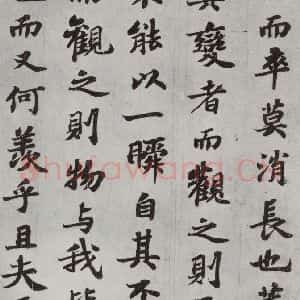 而卒莫消長也蓋
其變者而觀之則
能以一瞬自其不
而觀之則物与我皆
而又何羨乎且夫
Shufawang.Cn